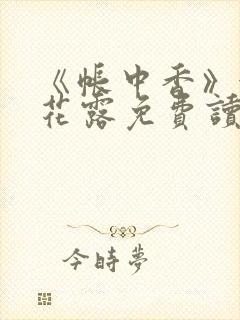 《帳中香》
花露免費讀
今時夢